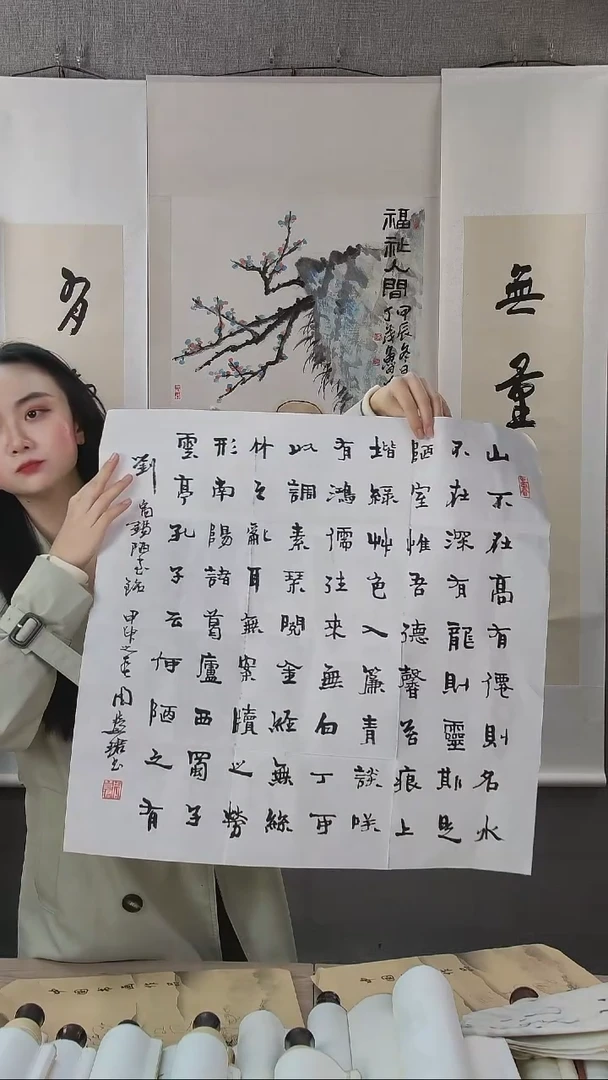 無量
福祉人間
甲辰冬日
山不在高有僊則名水
不在深有龍則靈斯是
陋室惟吾德馨苔痕上
堦綠艸色入簾青談咲
有鴻儒往来無白丁可
以調素琴閲金經無絲
竹之亂耳無案牘之勞
形南陽諸葛廬西蜀子
雲亭孔子云何陋之有
劉禹錫陋室銘